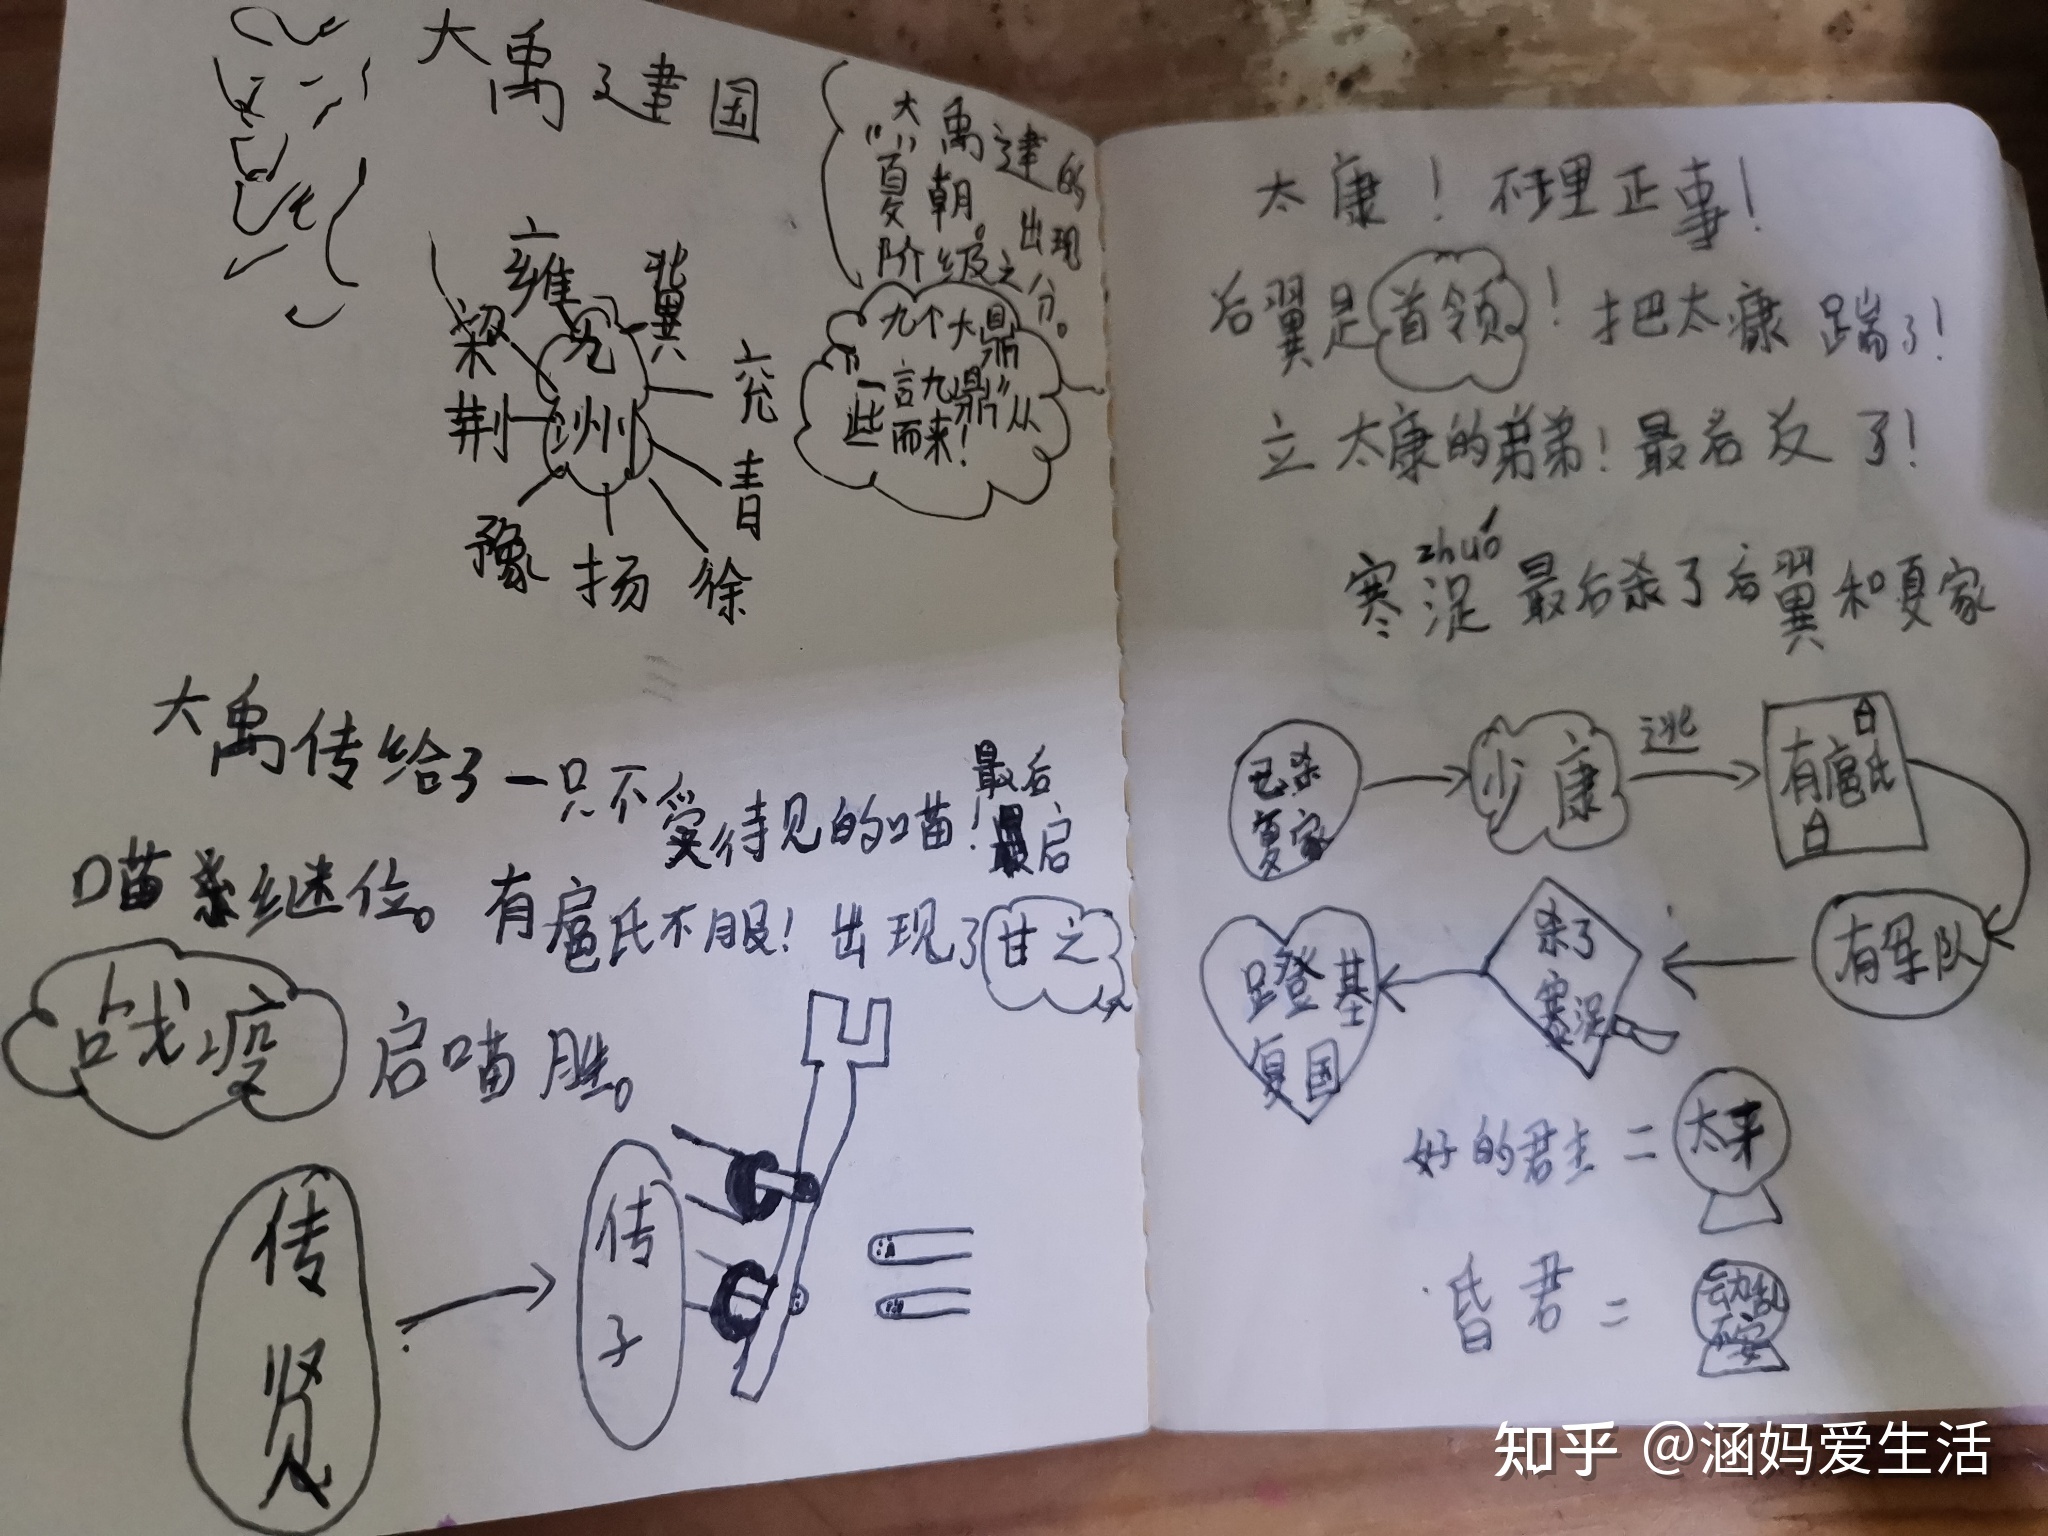 大禹建国
大禹建的
夏朝。出现
阶级之分。
九个大鼎
"一言九鼎"从
些而来!
九州
雍
冀
兖
青
徐
扬
豫
荆
梁
大禹传给了一只不受待见的喵!最后
最启
喵继位。有扈氏不服!出现了甘之
战疫
启喵胜。
传贤
传子
太康!不理正事!
后翼是首领!把太康踹了!
立太康的弟弟!最后反了!
zhuó
寒浞最后杀了后翼和夏家
已杀夏家
少康
逃
有扈氏
有军队
杀了寒浞
蹬基复国
好的君主=太来
昏君=动乱不安
知乎 @涵妈爱生活